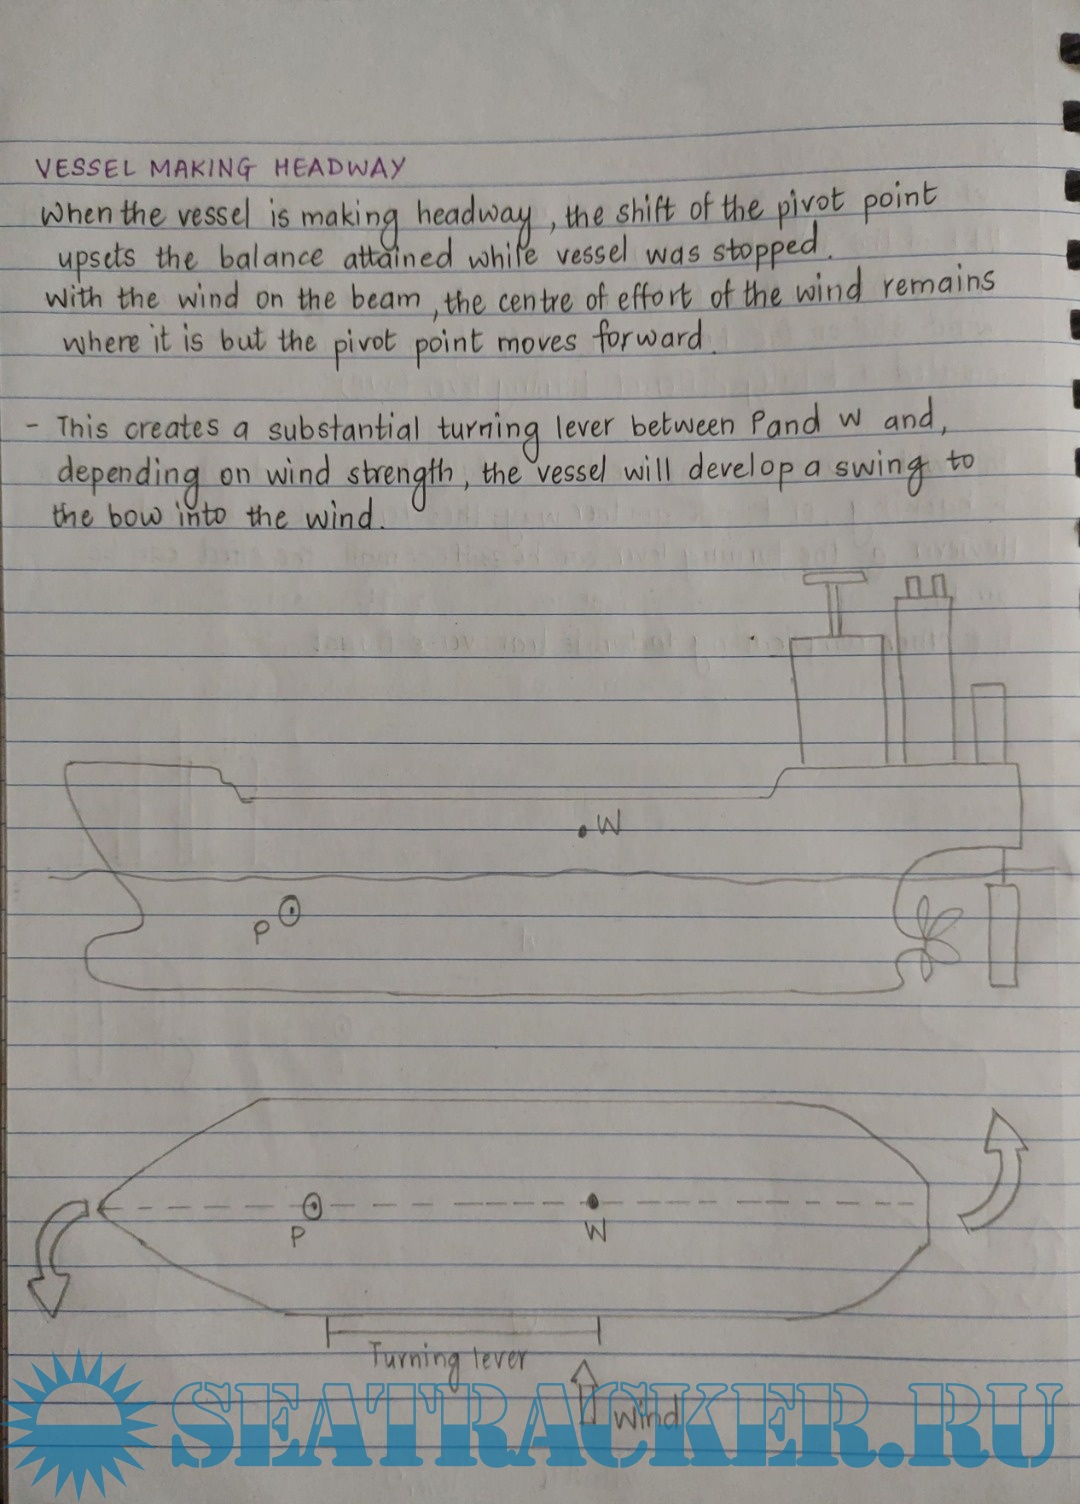 VESSEL MAKING HEADWAY
When the vessel is making headway, the shift of the pivot point
upsets the balance attained while vessel was stopped.
With the wind on the beam, the centre of effort of the wind remains
where it is but the pivot point moves forward.
- This creates a substantial turning lever between P and W and,
depending on wind strength, the vessel will develop a swing to
the bow into the wind.
W
P
P
W
Turning lever
Wind
SEATRACKER.RU